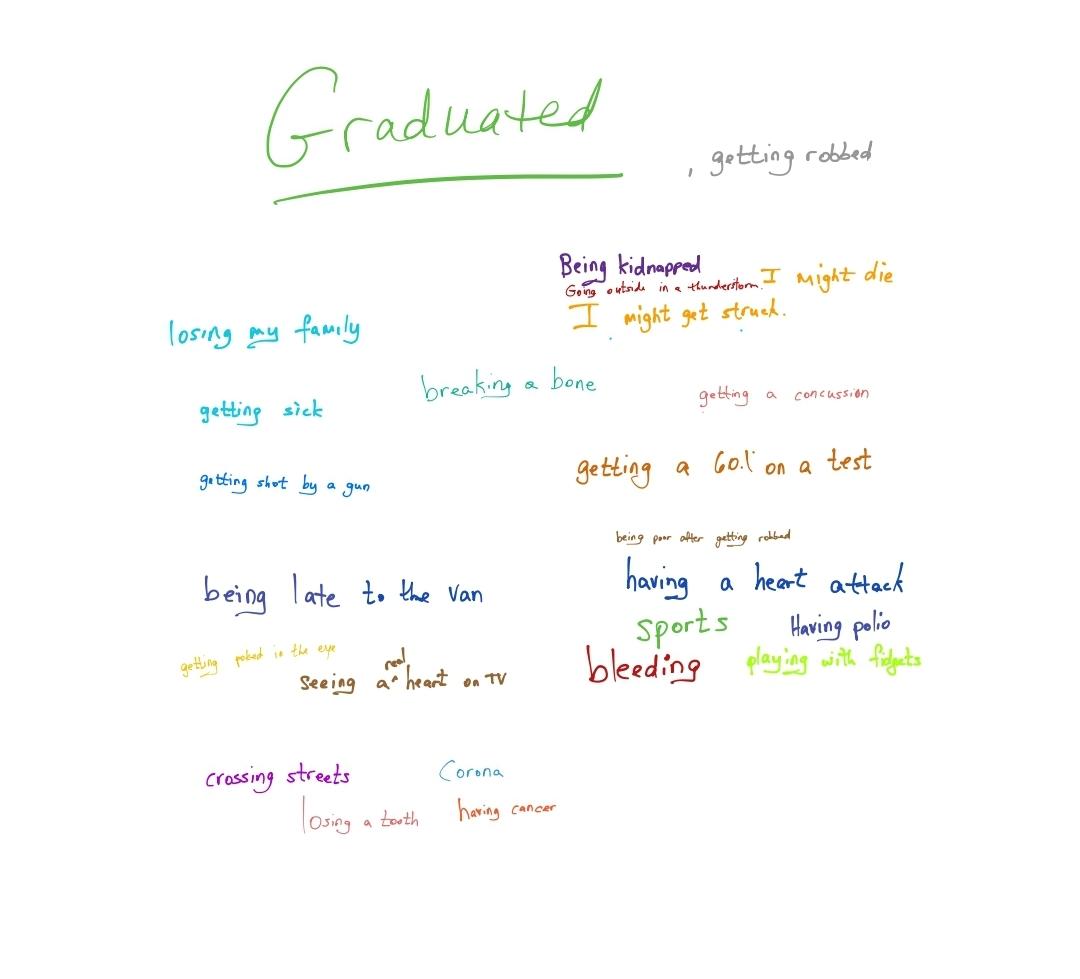 Graduated
, getting robbed
Being kidnapped
Going outside in a thunderstorm. I might die
I might get struck.
losing my family
breaking a bone
getting a concussion
getting sick
getting a 60% on a test
getting shot by a gun
being poor after getting robbed
having a heart attack
being late to the van
sports
Having polio
getting poked in the eye
bleeding
playing with fidgets
seeing a ^real heart on TV
crossing streets
Corona
losing a tooth
having cancer